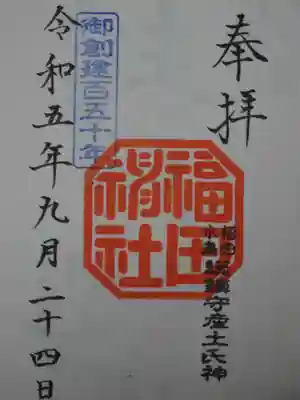 奉拝
福田
小島
総鎮守産土氏神
福田
稍社
御創建百五十年
令和五年九月二十四日